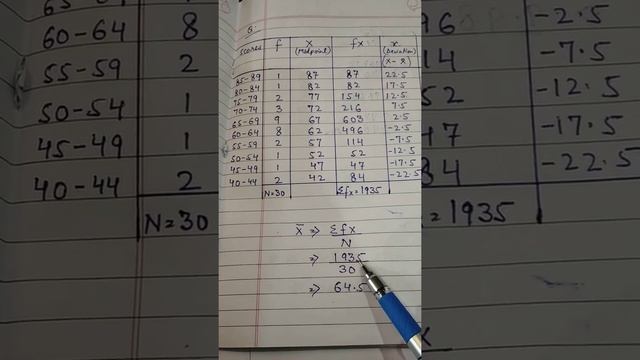 Scores f X (Midpoint) fX x (Deviation) (X - x̄)
85-89 1 87 87 22.5
80-84 1 82 82 17.5
75-79 2 77 154 12.5
70-74 3 72 216 7.5
65-69 9 67 603 2.5
60-64 8 62 496 -2.5
55-59 2 57 114 -7.5
50-54 1 52 52 -12.5
45-49 1 47 47 -17.5
40-44 2 42 84 -22.5
N=30 Σfx = 1935
X̄ ⇒ Σfx
N
⇒ 1935
30
⇒ 64.5
60-64 8
55-59 2
50-54 1
45-49 1
40-44 2
N=30
96 -2.5
14 -7.5
52 -12.5
47 -17.5
84 -22.5
= 1935